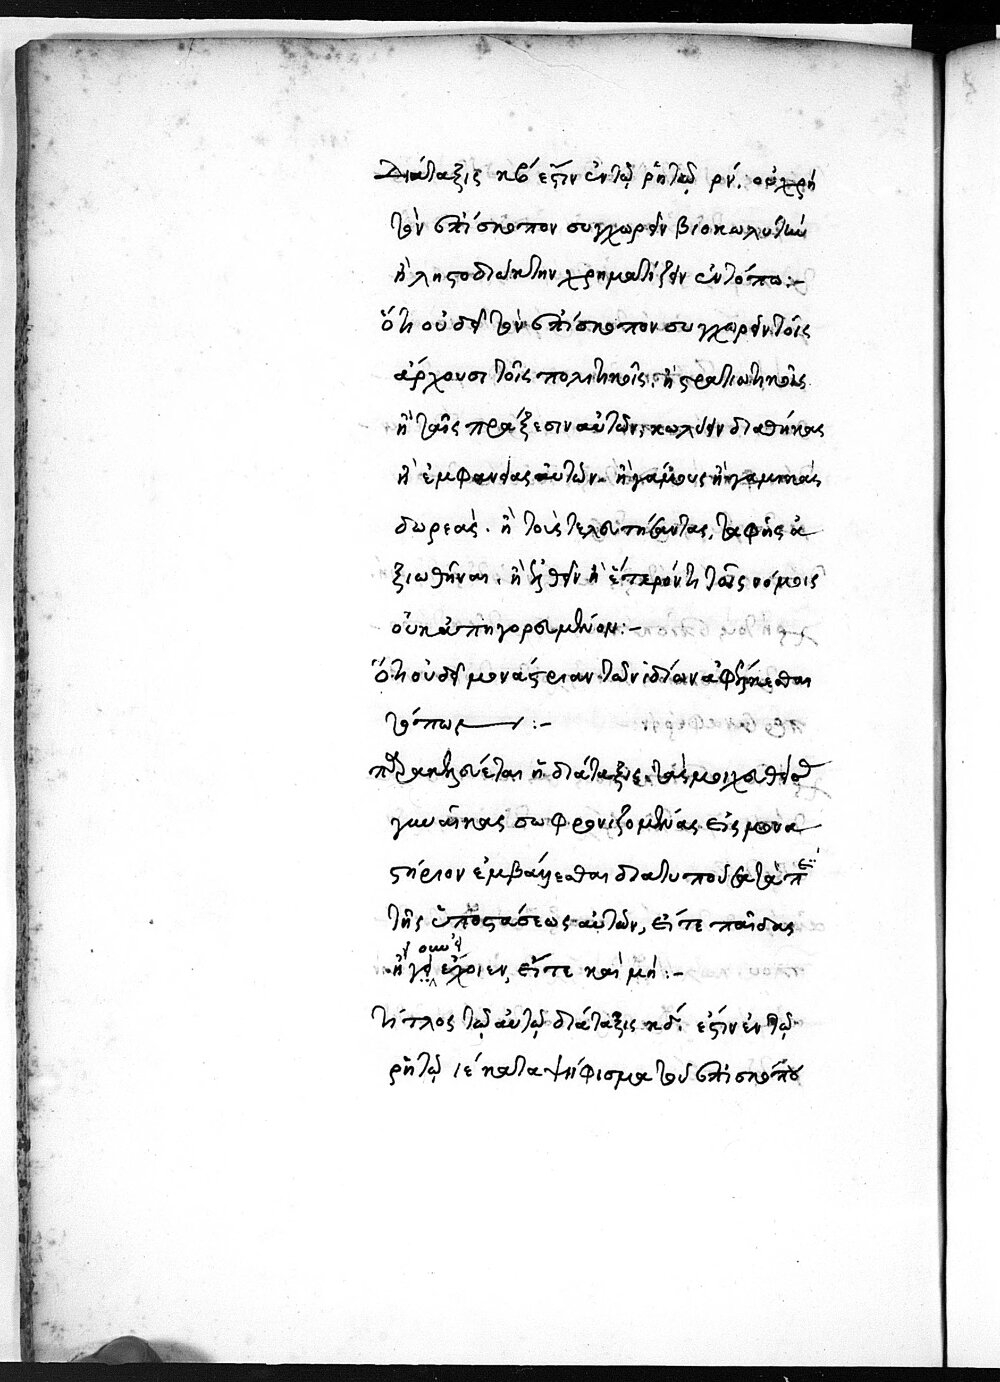 Διάταξις κβ́ ἐστὶν ἐν τῷ ῥητῷ ρν́. οὐ χρὴ
τὸν ἐπίσκοπον συγχωρεῖν βιοκωλύτην
ἢ λῃστοδιώκτην χρηματίζειν ἐν τόπω:–
ὅτι οὐ δεῖ τὸν ἐπίσκοπον συγχωρεῖν τοῖς
ἄρχουσι τοῖς πολιτικοῖς, ἢ στρατιωτικοῖς
ἢ ταῖς πράξεσιν αὐτῶν, κωλύειν διαθήκας
ἢ ἐμφανείας αὐτῶν. ἢ γάμους ἢ γαμικὰς
δωρεάς. ἢ τοὺς τελευτήσαντας, ταφῆς ἀ
ξιωθῆναι, ἢ ἕτερόν τι τοῖς νόμοις
οὐκ ἀπηγορευμένον:–
Ὅτι οὐ δεῖ μοναστήριον τῶν ἰδίων ἀφίστασθαι
τόπων:–
ἡ διάταξις, τὰς μοιχευθείσας
γυναῖκας σωφρονιζομένας εἰς μονα
στήριον ἐμβάλλεσθαι διατυποῦσα τὰ περὶ
τῆς ὑποστάσεως αὐτῶν, εἴτε παῖδας
ἢ γονεῖς ἔχοιεν, εἴτε καὶ μή:–
τίτλος τῷ αὐτῷ διάταξις κδ́. ἐστὶν ἐν τῷ
ῥητῷ ιέ κατα ψήφισμα τοῦ ἐπισκόπου